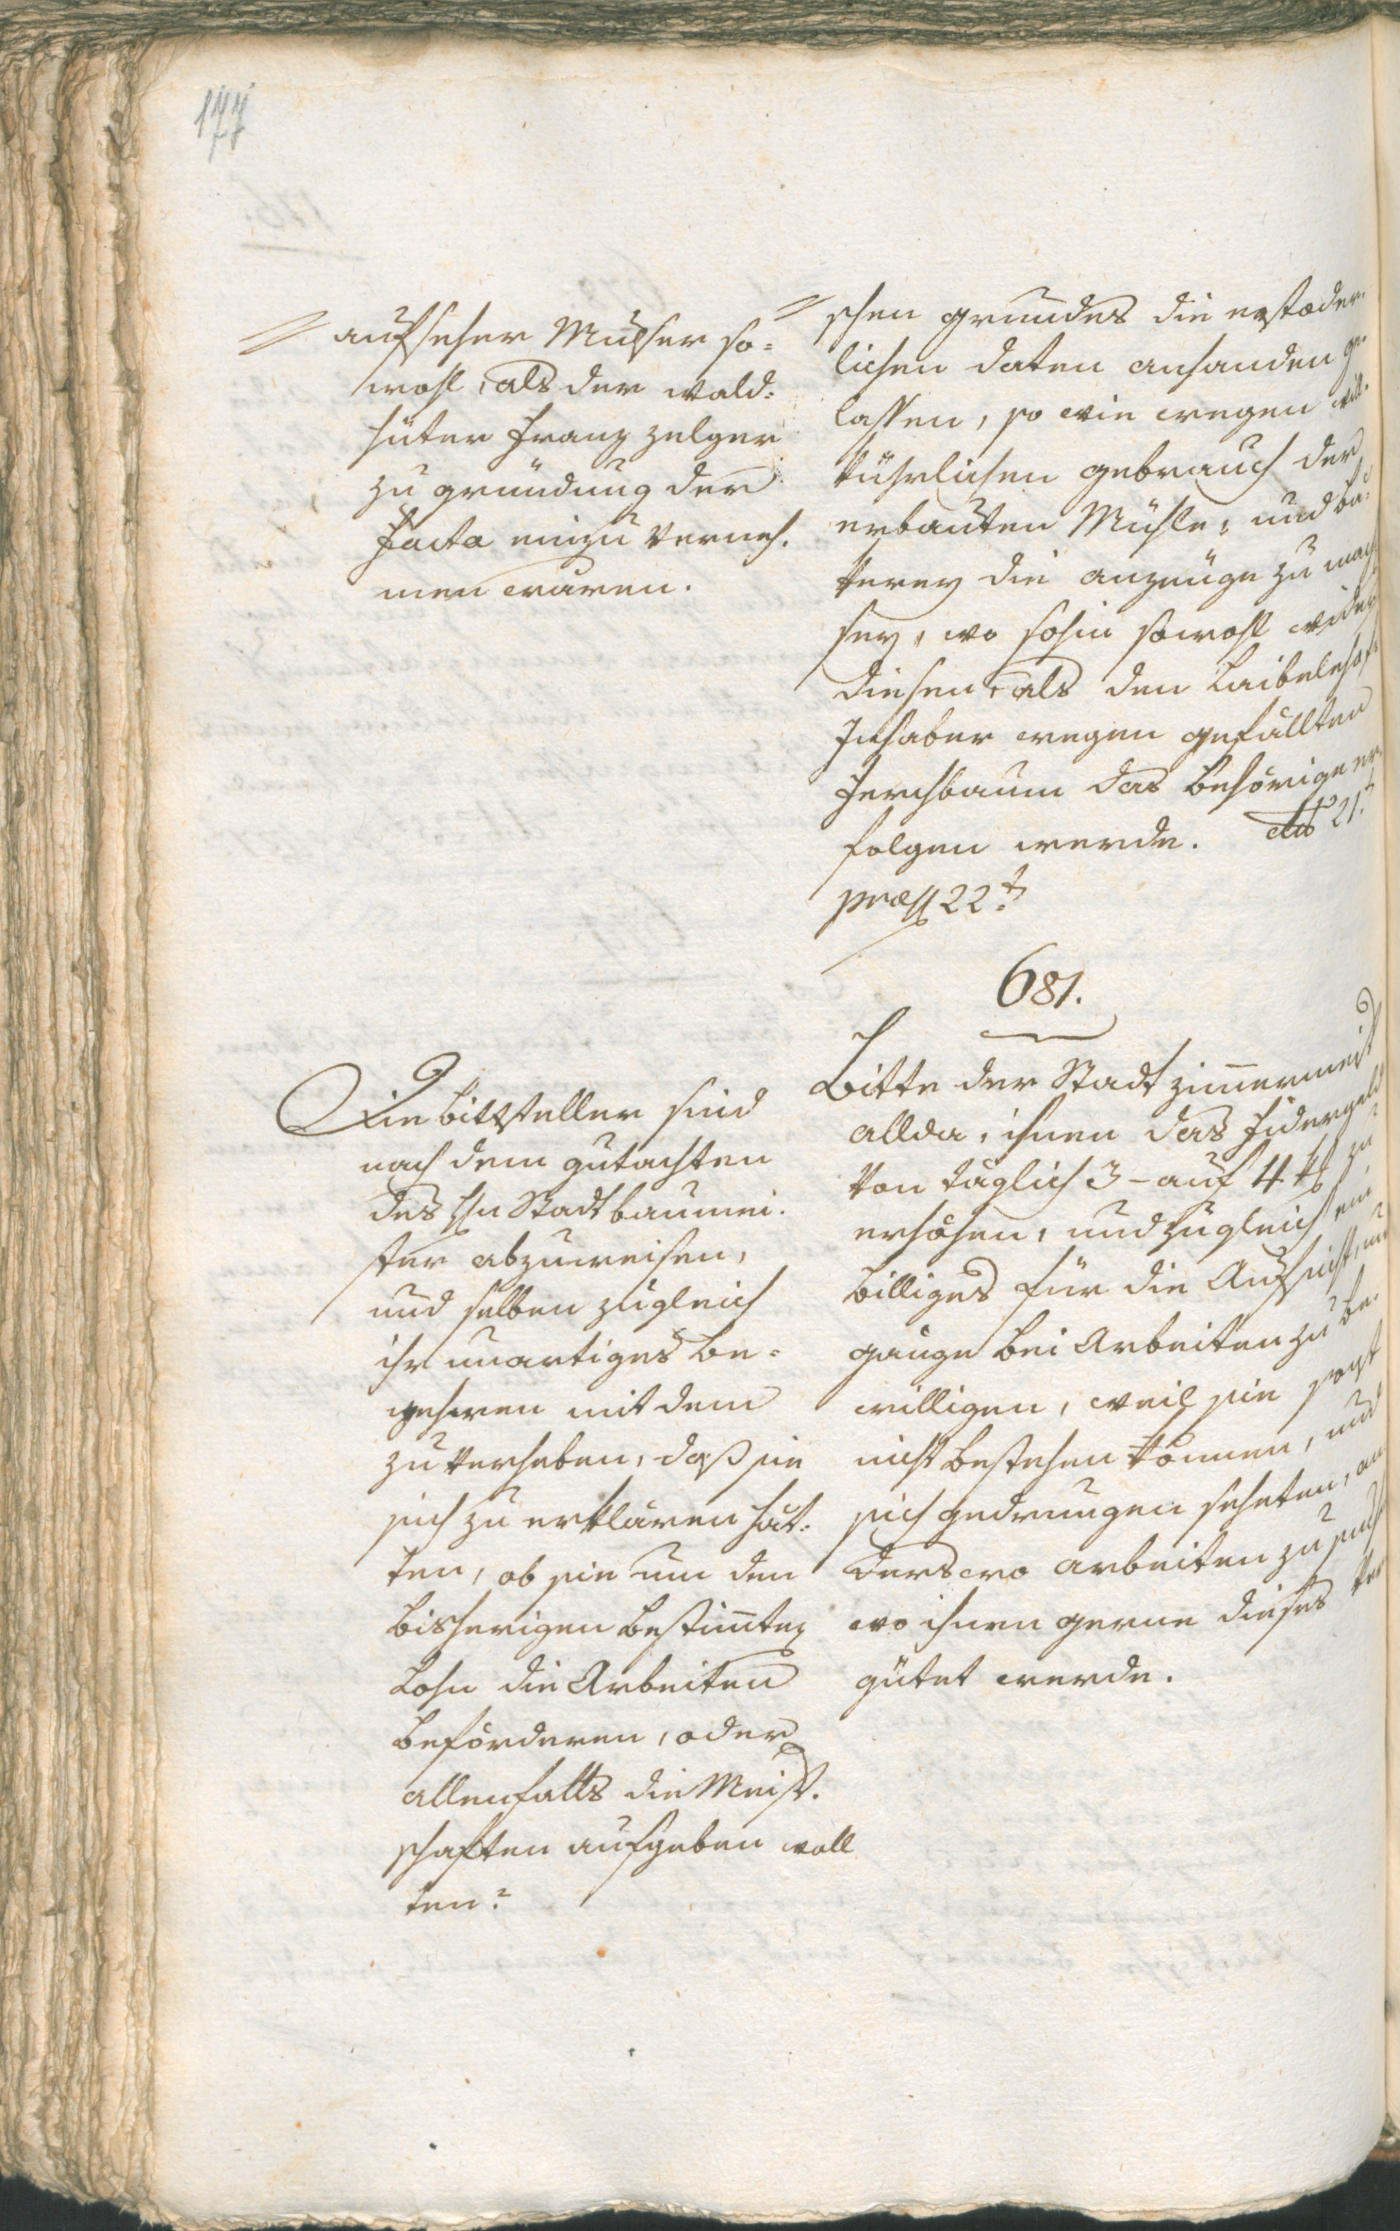 177
aufseher Mulser so=
wohl, als der wald=
hüter Franz Zelger
zu gründung der
Facta einzu verneh=
men wären.
schen grundes die erfoder=
lichen daten anhanden ge=
lassen, so wie wegen will=
kührlichen gebrauch der
erbauten Mühle, und bä=
kerey die anzeüge zu mach
sey, wo sohin sowohl wider
diesen, als den Laibelehof=
Inhaber wegen gefällten
Ferchbaum das behörige er=
folgen werde. dto 21t
præss 22t
681.
Die bittsteller sind
nach dem gutachten
des Hn Stadtbaumei=
ster abzuweisen,
und selben zugleich
ihr unartiges be=
gehren mit dem
zu verheben, daß sie
sich zu erklären hät=
ten, ob sie um den
bisherigen bestim̄ten
Lohn die Arbeiten
beförderen, oder
allenfalls die Meist=
schaften aufgeben woll
ten?
Bitte der Stadt zim̄ermeist
allda, ihnen das Fidergeld
von täglich 3 – auf 4 x zu
erhöhen, und zugleich ein
billiges für die Aufsicht, und
gänge bei Arbeiten zu be=
willigen, weil sie sonst
nicht bestehen können, und
sich gedrungen seheten, an
derswo arbeiten zu such
wo ihnen gerne dieses ver
gütet werde.